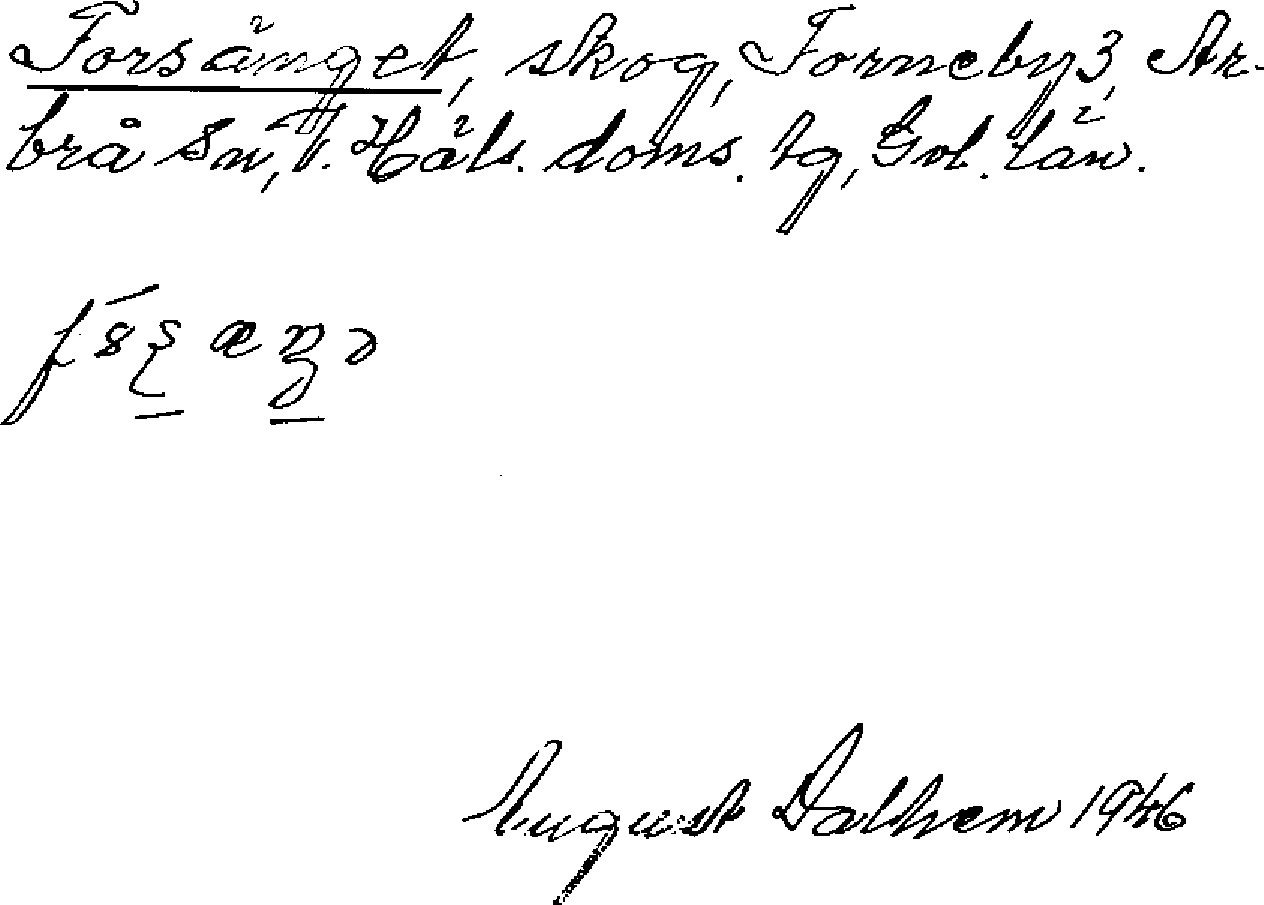 Forsänget, skog, Forneby 3, Ar-
brå sn, V. Häls. doms. tg, Gvl. län.
August Dalhem 1946